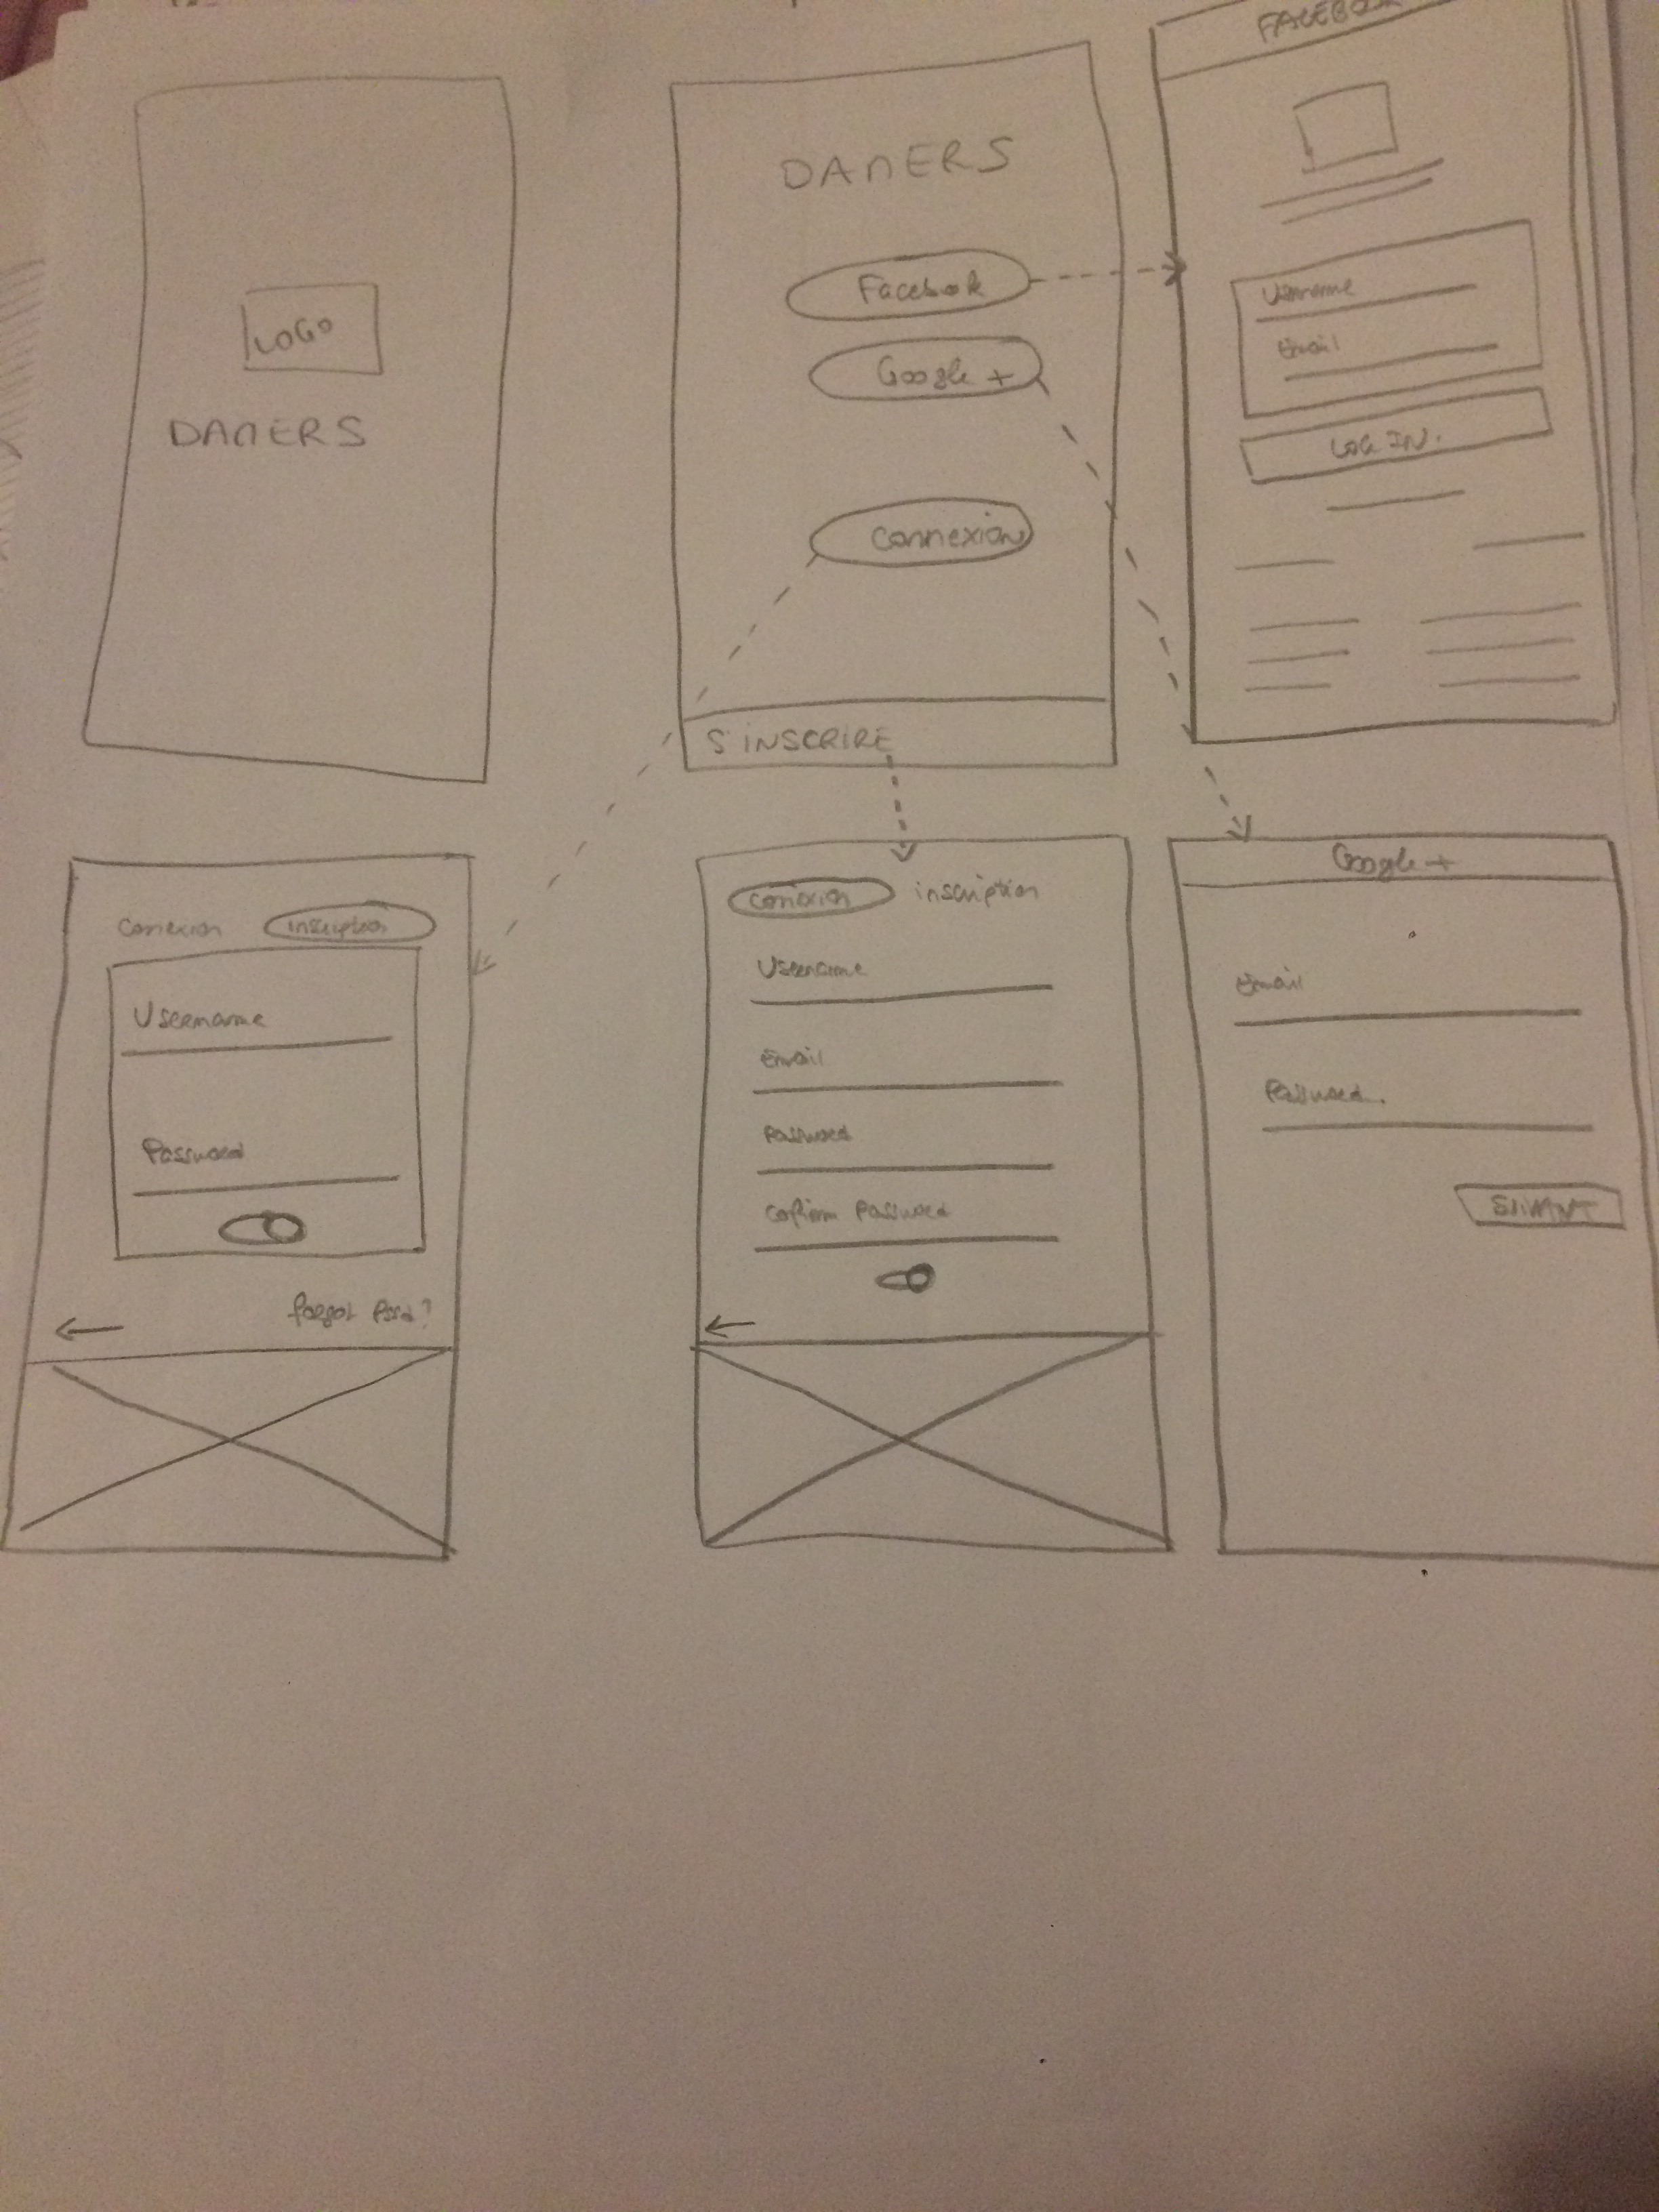 LOGO
DANERS
DANERS
Facebook
Google +
Connexion
S'INSCRIRE
FACEBOOK
Username
Email
LOG IN.
Connexion inscription
Username
Password
forgot
Connexion inscription
Username
Email
Password
Cofirm Password
Google +
Email
Password.
SUIVANT